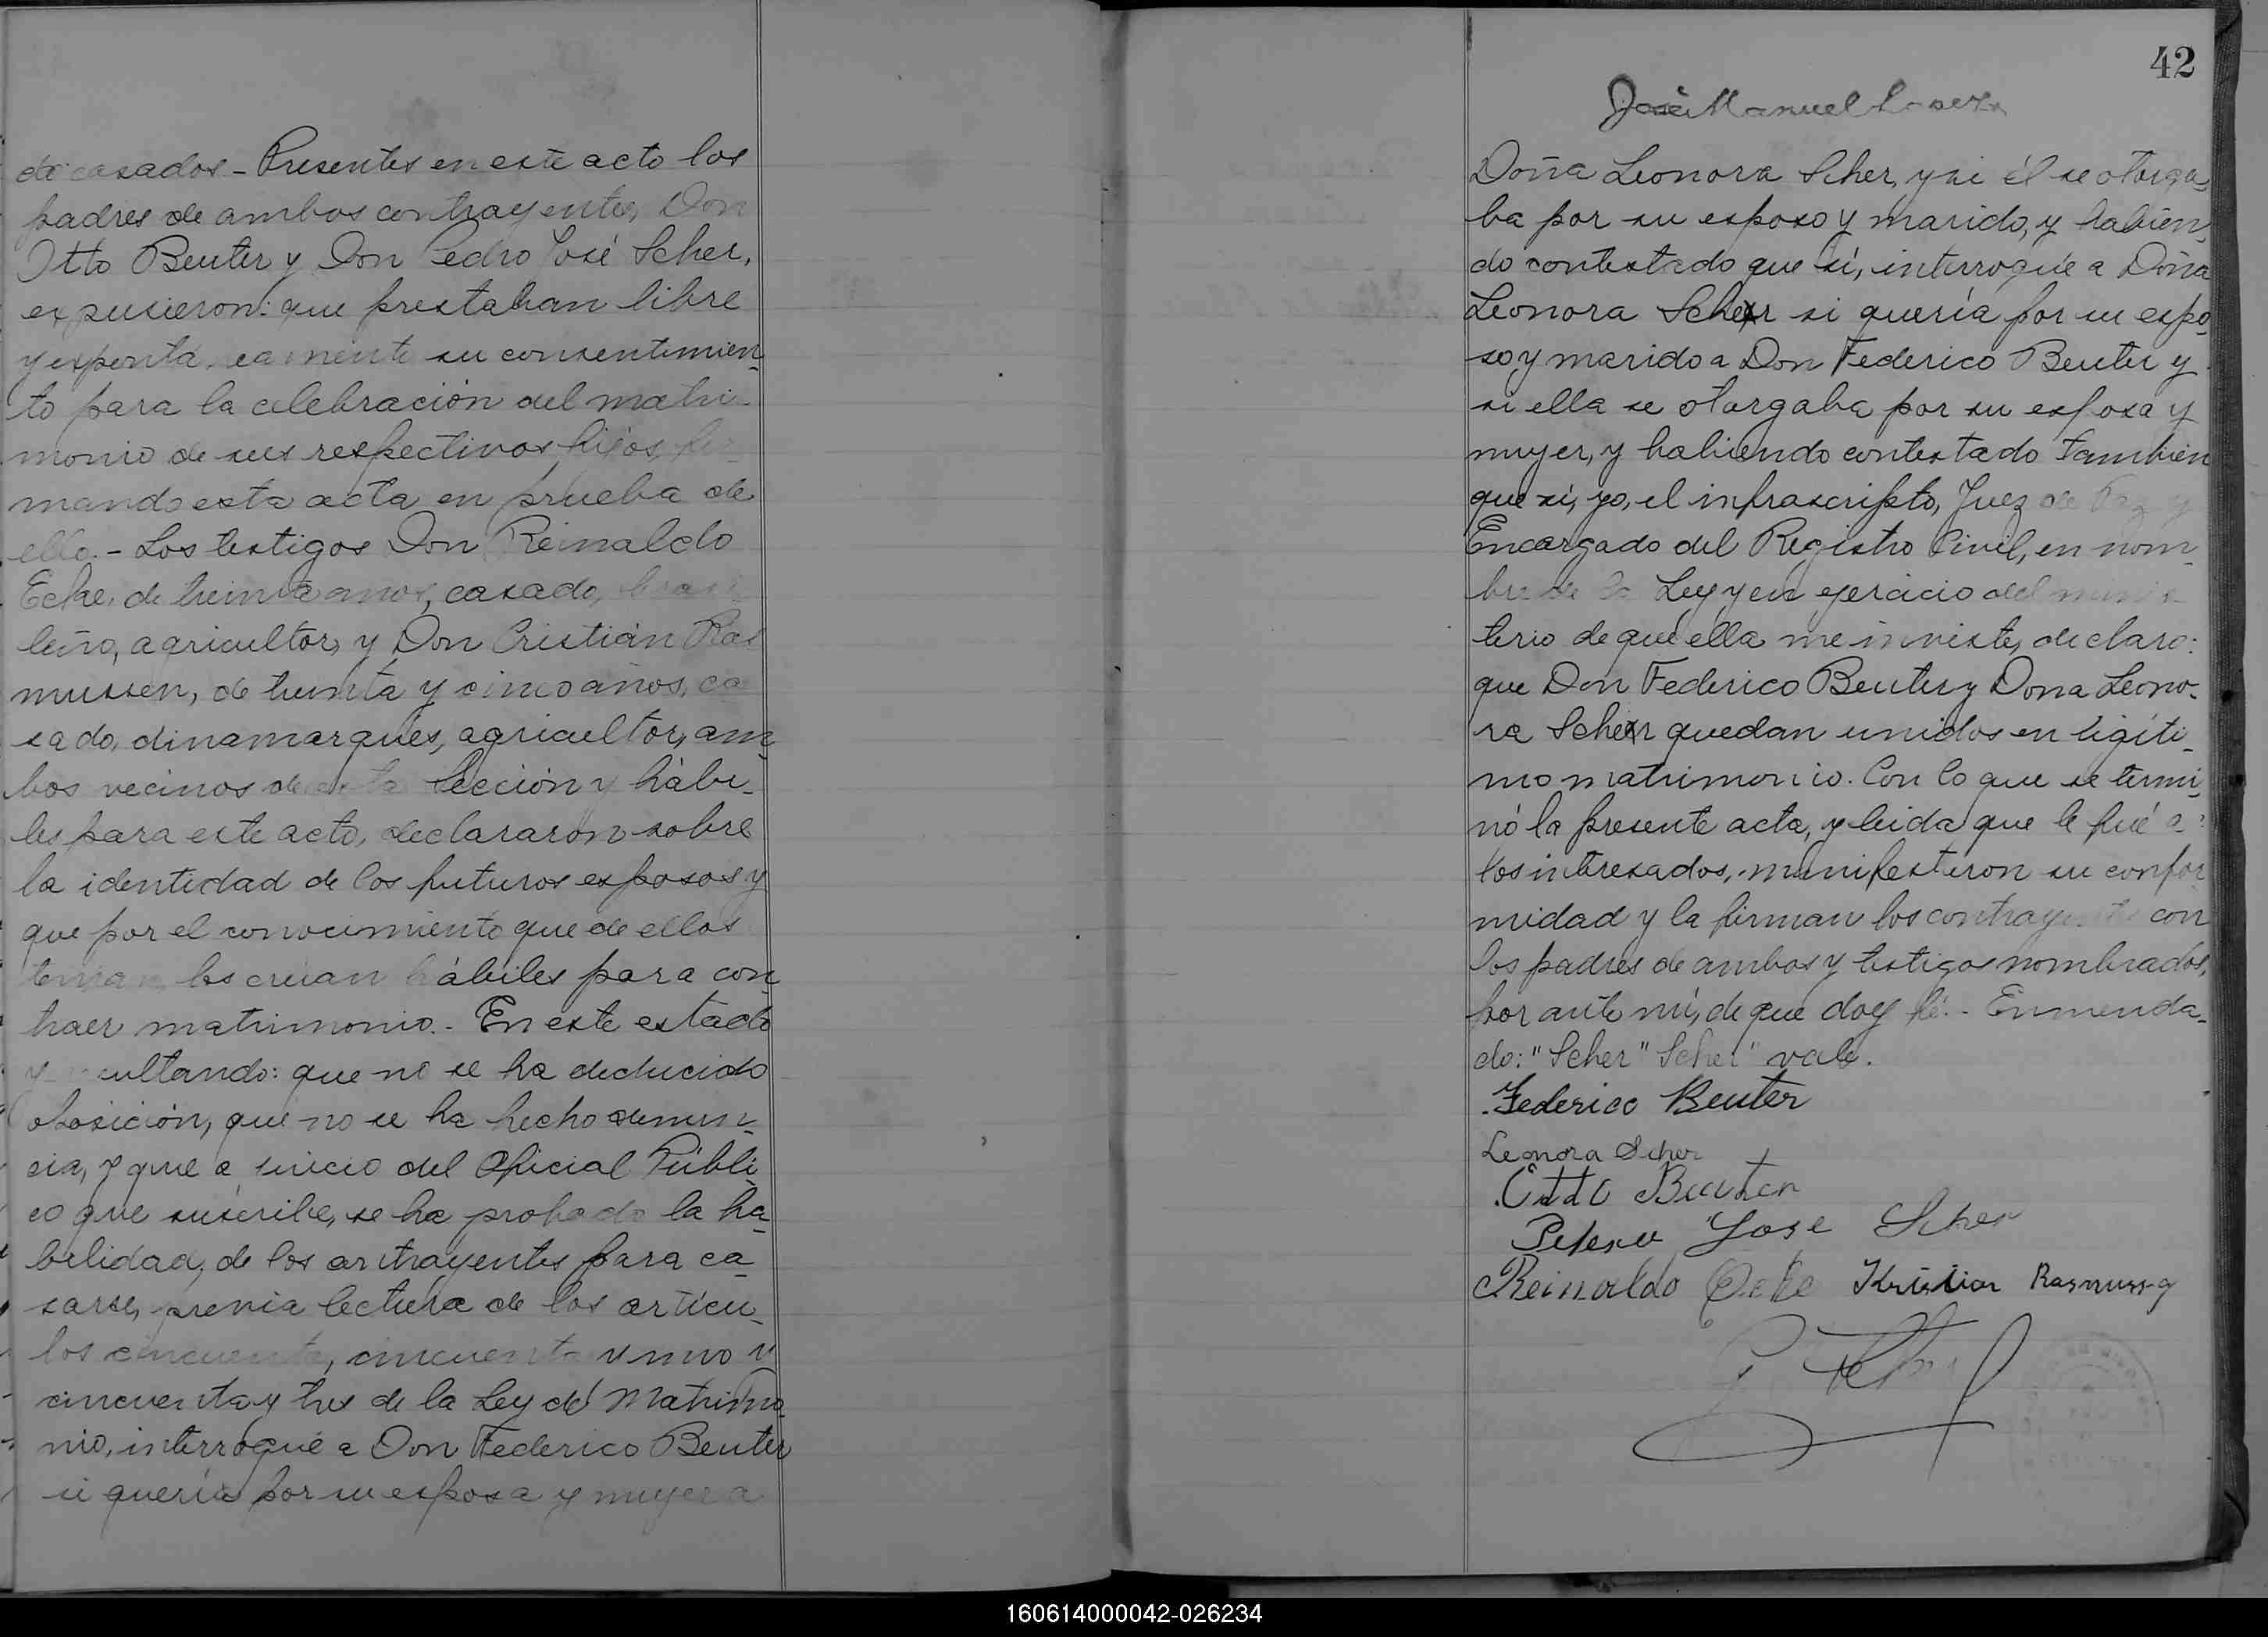 de casados - Presentes en este acto los
padres de ambos contrayentes, Don
Otto Beuter y Don Pedro José Scher,
expusieron: que prestaban libre
y espontáneamente su consentimien-
to para la celebración del matri-
monio de sus respectivos hijos, fir-
mando esta acta en prueba de
ello. - Los testigos Don Reinaldo
Ecke, de treinta años, casado, brasi-
leño, agricultor, y Don Cristián Ras
mussen, de treinta y cinco años, ca
sado, dinamarqués, agricultor, am-
bos vecinos de esta Sección y hábi-
les para este acto, declararon sobre
la identidad de los futuros esposos y
que por el conocimiento que de ellos
tenían los creían hábiles para con-
traer matrimonio. - En este estado
y resultando: que no se ha deducido
oposición, que no se ha hecho denun-
cia, y que a juicio del Oficial Públi-
co que suscribe, se ha probado la ha-
bilidad, de los contrayentes para ca-
sarse, previa lectura de los artícu-
los cincuenta, cincuenta y uno y
cincuenta y tres de la Ley de Matrimo-
nio, interrogué a Don Federico Beuter
si quería por su esposa y mujer a
42
José Manuel
Doña Leonora Scher, y si él se otorga-
ba por su esposo y marido, y habien-
do contestado que sí, interrogué a Doña
Leonora Scher si quería por su espo-
so y marido a Don Federico Beuter y
si ella se otorgaba por su esposa y
mujer, y habiendo contestado también
que sí, yo, el infrascripto, Juez de Paz y
Encargado del Registro Civil, en nom-
bre de la Ley y en ejercicio del minis-
terio de que ella me inviste, declaro:
que Don Federico Beuter y Dona Leono-
ra Scher quedan unidos en legíti-
mo matrimonio. Con lo que se termi-
nó la presente acta, y leida que le fué a
los interesados, manifestaron su confor
midad y la firman los contrayentes con
los padres de ambos y testigos nombrados,
por ante mí, de que doy fé. - Enmenda-
do: "Scher" "Scher" vale.
Federico Beuter
Leonora Scher
Otto Beuter
José Scher
Reinaldo Ecke Kristian
160614000042-026234